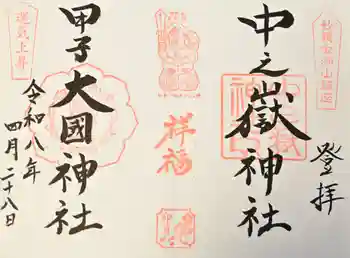 登拝
中之嶽神社
祥福
運気上昇
甲子大國神社
令和八年
四月二十八日